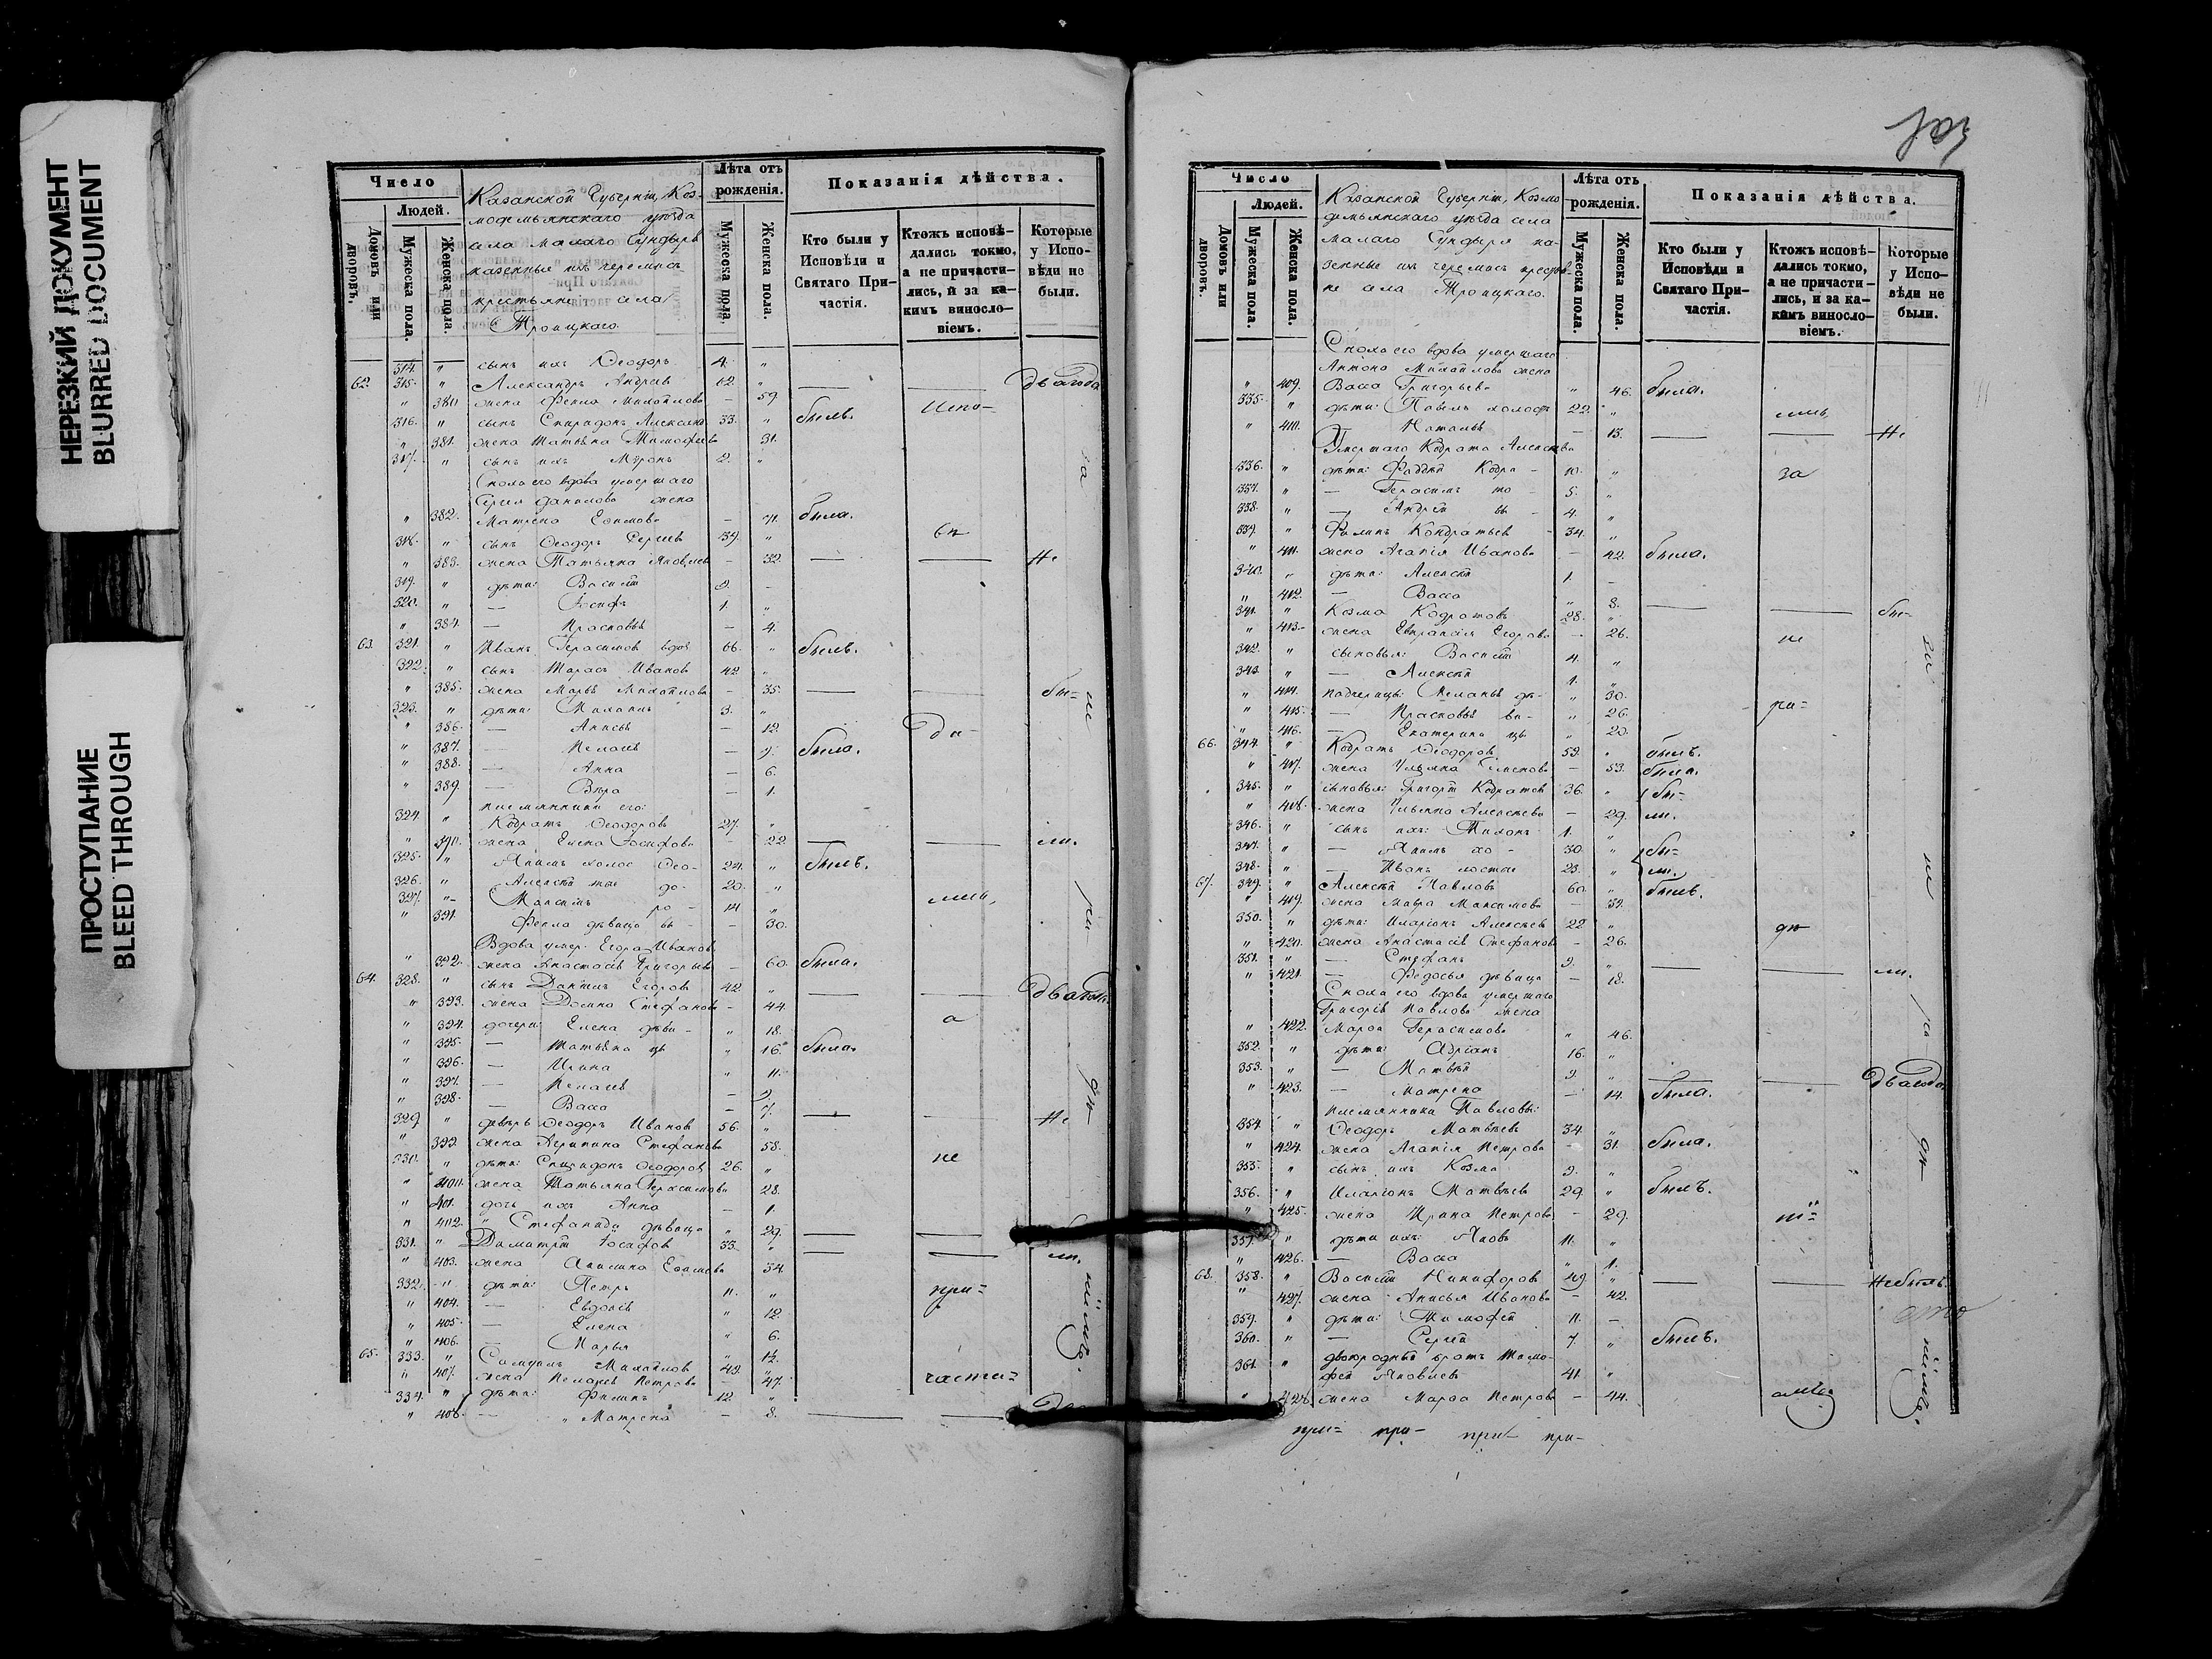 НЕРЕЗКИЙ ДОКУМЕНТ
BLURRED DOCUMENT
ПРОСТУПАНИЕ
BLEED THROUGH
Число
Людей.
Домовъ или дворовъ.
Мужеска пола.
Женска пола.
Казанской Губерніи, Коз-
модемьянскаго уѣзда
села Малаго Сундыря
казенные изъ черемисъ
крестьяне села
Троицкаго.
Лѣта отъ рожденія.
Мужеска пола.
Женска пола.
Показанія дѣйства.
Кто были у Исповѣди и Святаго При-частія.
Ктожъ исповѣ-дались токмо, а не причасти-лись, и за ка-кимъ винословіемъ.
Которые у Испо-вѣди не были.
314. " сынъ ихъ Ѳеодоръ 4. "
62. 315. " Александръ Андреевъ 62. " — — Два года
" 380. жена Фекла Михайлова — 59.
316. " сынъ Спиридонъ Александр 33. " былъ. Испо-
" 381. жена Татьяна Тимофеева 31.
317. " сынъ ихъ Миронъ 2. "
Снохаего вдова умершаго
Сергия Данилова жена
" 382. Матрена Ефимова — 71. была.
318. " сынъ Ѳеодоръ Сергеевъ 39. "
" 383. жена Татьяна Яковлева — 32. — — Не
319. " дѣти: Василій 9. -
320. " — Іосифъ 1. "
" 384. — Прасковья — 4.
63. 321. " Иванъ Герасимовъ вдов 66. " былъ.
322. " сынъ Тарасъ Ивановъ 42 "
" 385. жена Марья Михайлова — 35. — — бы=
323. " дѣти: Михаилъ 3. "
" 386. — Анисья — 12.
" 387. — Пелагея — 9. была.
" 388. — Анна — 6.
" 389. — Вѣра — 1.
племянники его:
324. " Кодратъ Ѳеодоровъ 27. "
" 390. жена Елена Іосифова 22. — — ли.
325. " Якимъ холос Ѳео- 24. " былъ.
326. " Алексѣй тые до- 20. "
327. " Максимъ ро- 14 "
" 391. Фекла дѣвица въ — — 30.
Вдова умер. Егора Иванова
" 392. жена Анастасія Григорьева — 60. была.
64. 328. " сынъ Даніилъ Егоровъ 42. " — — Два года
" 393. жена Домна Стефанова — 44.
" 394. дочери: Елена дѣви- " 18.
" 395. — Татьяна цы " 16. была.
" 396. — Ирина " 11.
" 397. — Пелагея — 9.
" 398. — Васса — 7.
329. " деверь Ѳеодоръ Ивановъ 56. " — — Не
" 399. жена Агрипина Стефанова 58.
330. " дѣти: Спиридонъ Ѳеодоровъ 26. " не
" 400. жена Татьяна Герасимова 28.
" 401. дочь ихъ Анна — 1.
" 402. " Стефанида дѣвица " 29.
331. " Димитрій Іосифовъ 33. " — — ли.
" 403. жена Акилина Ефимова 34.
332. " дѣти: Петръ 11. " при=
" 404. — Евдокія " 12.
" 405. — Елена
" 406. — Марья " 6.
65. 333. " Самуилъ Михайловъ 43. "
" 407. жена Пелагея Петрова — 47. части=
334. " дѣти: Филипъ 12. "
" 408. — " Матрена — 8. — —
Число
Людей.
Домовъ или дворовъ.
Мужеска пола.
Женска пола.
Казанской Губерніи, Козмо
демьянскаго уѣзда села
Малаго Сундыря ка-
зенные изъ черемисъ крестья-
не села Троицкаго.
Лѣта отъ рожденія.
Мужеска пола.
Женска пола.
Показанія дѣйства.
Кто были у Исповѣди и Святаго При-частія.
Ктожъ исповѣ-дались токмо, а не причасти-лись, и за ка-кимъ винословіемъ.
Которые у Испо-вѣди не были.
Снохаего вдова умершаго
Антона Михайлова жена
" 409. Васса Григорьева " 46. была.
335. " дѣти: Павелъ холост 22. "
" 410. Наталья — 13. — — Не
Умершаго Кодрата Алексѣева
336. " дѣти: Фаддѣй Кодра- 10. " за
337. " — Герасимъ то- 5. "
338. " — Андрей вы- 4. "
339. " Филипъ Кондратьевъ 34. "
" 411. жена Агапія Иванова — 42. была.
340. " дѣти: Алексѣй 1. -
" 412. — Васса " 8. — — бы=
341. " Козма Кодратовъ 28. "
" 413. жена Евпраксія Егорова — 26.
342. " сыновья: Василій 4. "
343. " — Алексѣй 1. "
" 414. падчерицы: Меланья дѣ- " 30.
" 415. — Прасковья ви- " 26.
" 416. — Екатерина цы " 20.
66. 344. " Кодратъ Ѳеодоровъ 52. " былъ.
" 417. жена Ульяна Семенова — 53. была.
345. " сыновья: Григорій Кодратов 36. " бы=
" 418. жена Ульяна Алексѣева — 29. ли.
346. " сынъ ихъ: Тихонъ 1. "
347. " — Якимъ хо- 30. " бы=
348. " — Иванъ лостые 23. " ли.
67. 349. " Алексѣй Павловъ 60. " былъ.
" 419. жена Мавра Максимова — 52.
350. " дѣти: Иларіонъ Алексѣевъ 22. "
" 420. жена Анастасія Стефанова — 26.
351. " — Стефанъ 9. " — — ли.
" 421. — Федосья дѣвица — 18.
Снохаего вдова умершаго
Григорія Павлова жена
" 422. Марѳа Герасимова " 46.
352. " дѣти: Адріанъ 16. "
353. " — Матвѣй 9. " — — Два года
" 423. — Матрена — 14. была.
племянники Павловы:
354. " Ѳеодоръ Матвѣевъ 34. "
" 424. жена Агапія Петрова 31. была.
355. " сынъ ихъ Козма 9. "
356. " Иларіонъ Матвѣевъ 29. " былъ.
" 425. жена Ирина Петрова — 29.
357. " дѣти ихъ: Яковъ 11. "
" 426. — Васса " 1.
68. 358. " Василій Никифоровъ 49. " — — Не былъ.
" 427. жена Анисья Иванова — 42.
359. " дѣти: Тимофей 11. -
360. " — Сергѣй 7. " былъ.
двоюродный братъ Тимо-
361. " фей Яковлевъ 41. "
" 428. жена Марѳа Петрова — 44.
при= при- при- при-